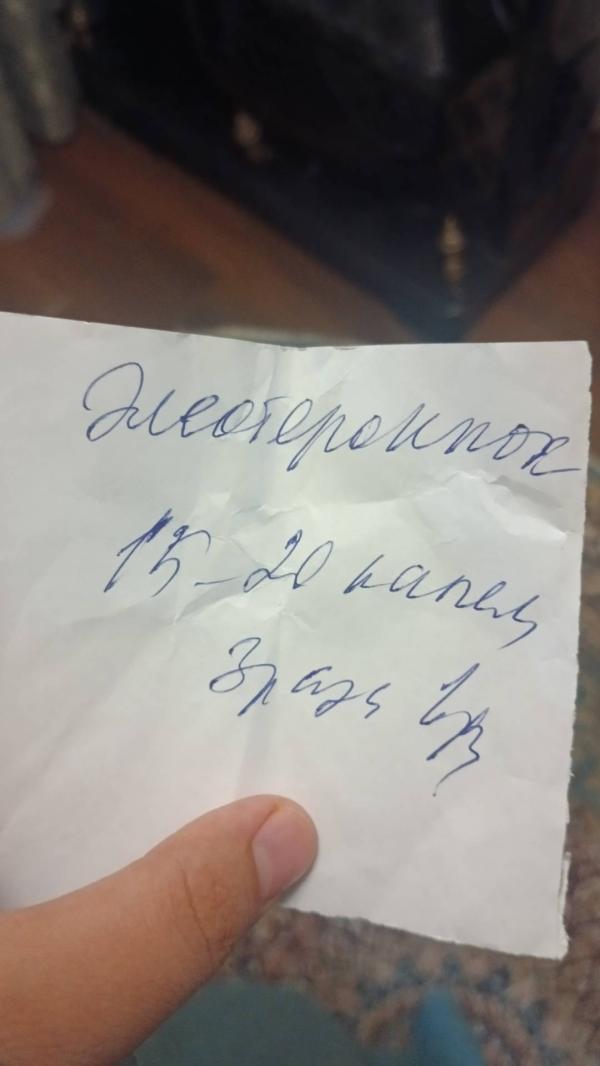 Элеотерококк
15-20 капель
3 раза